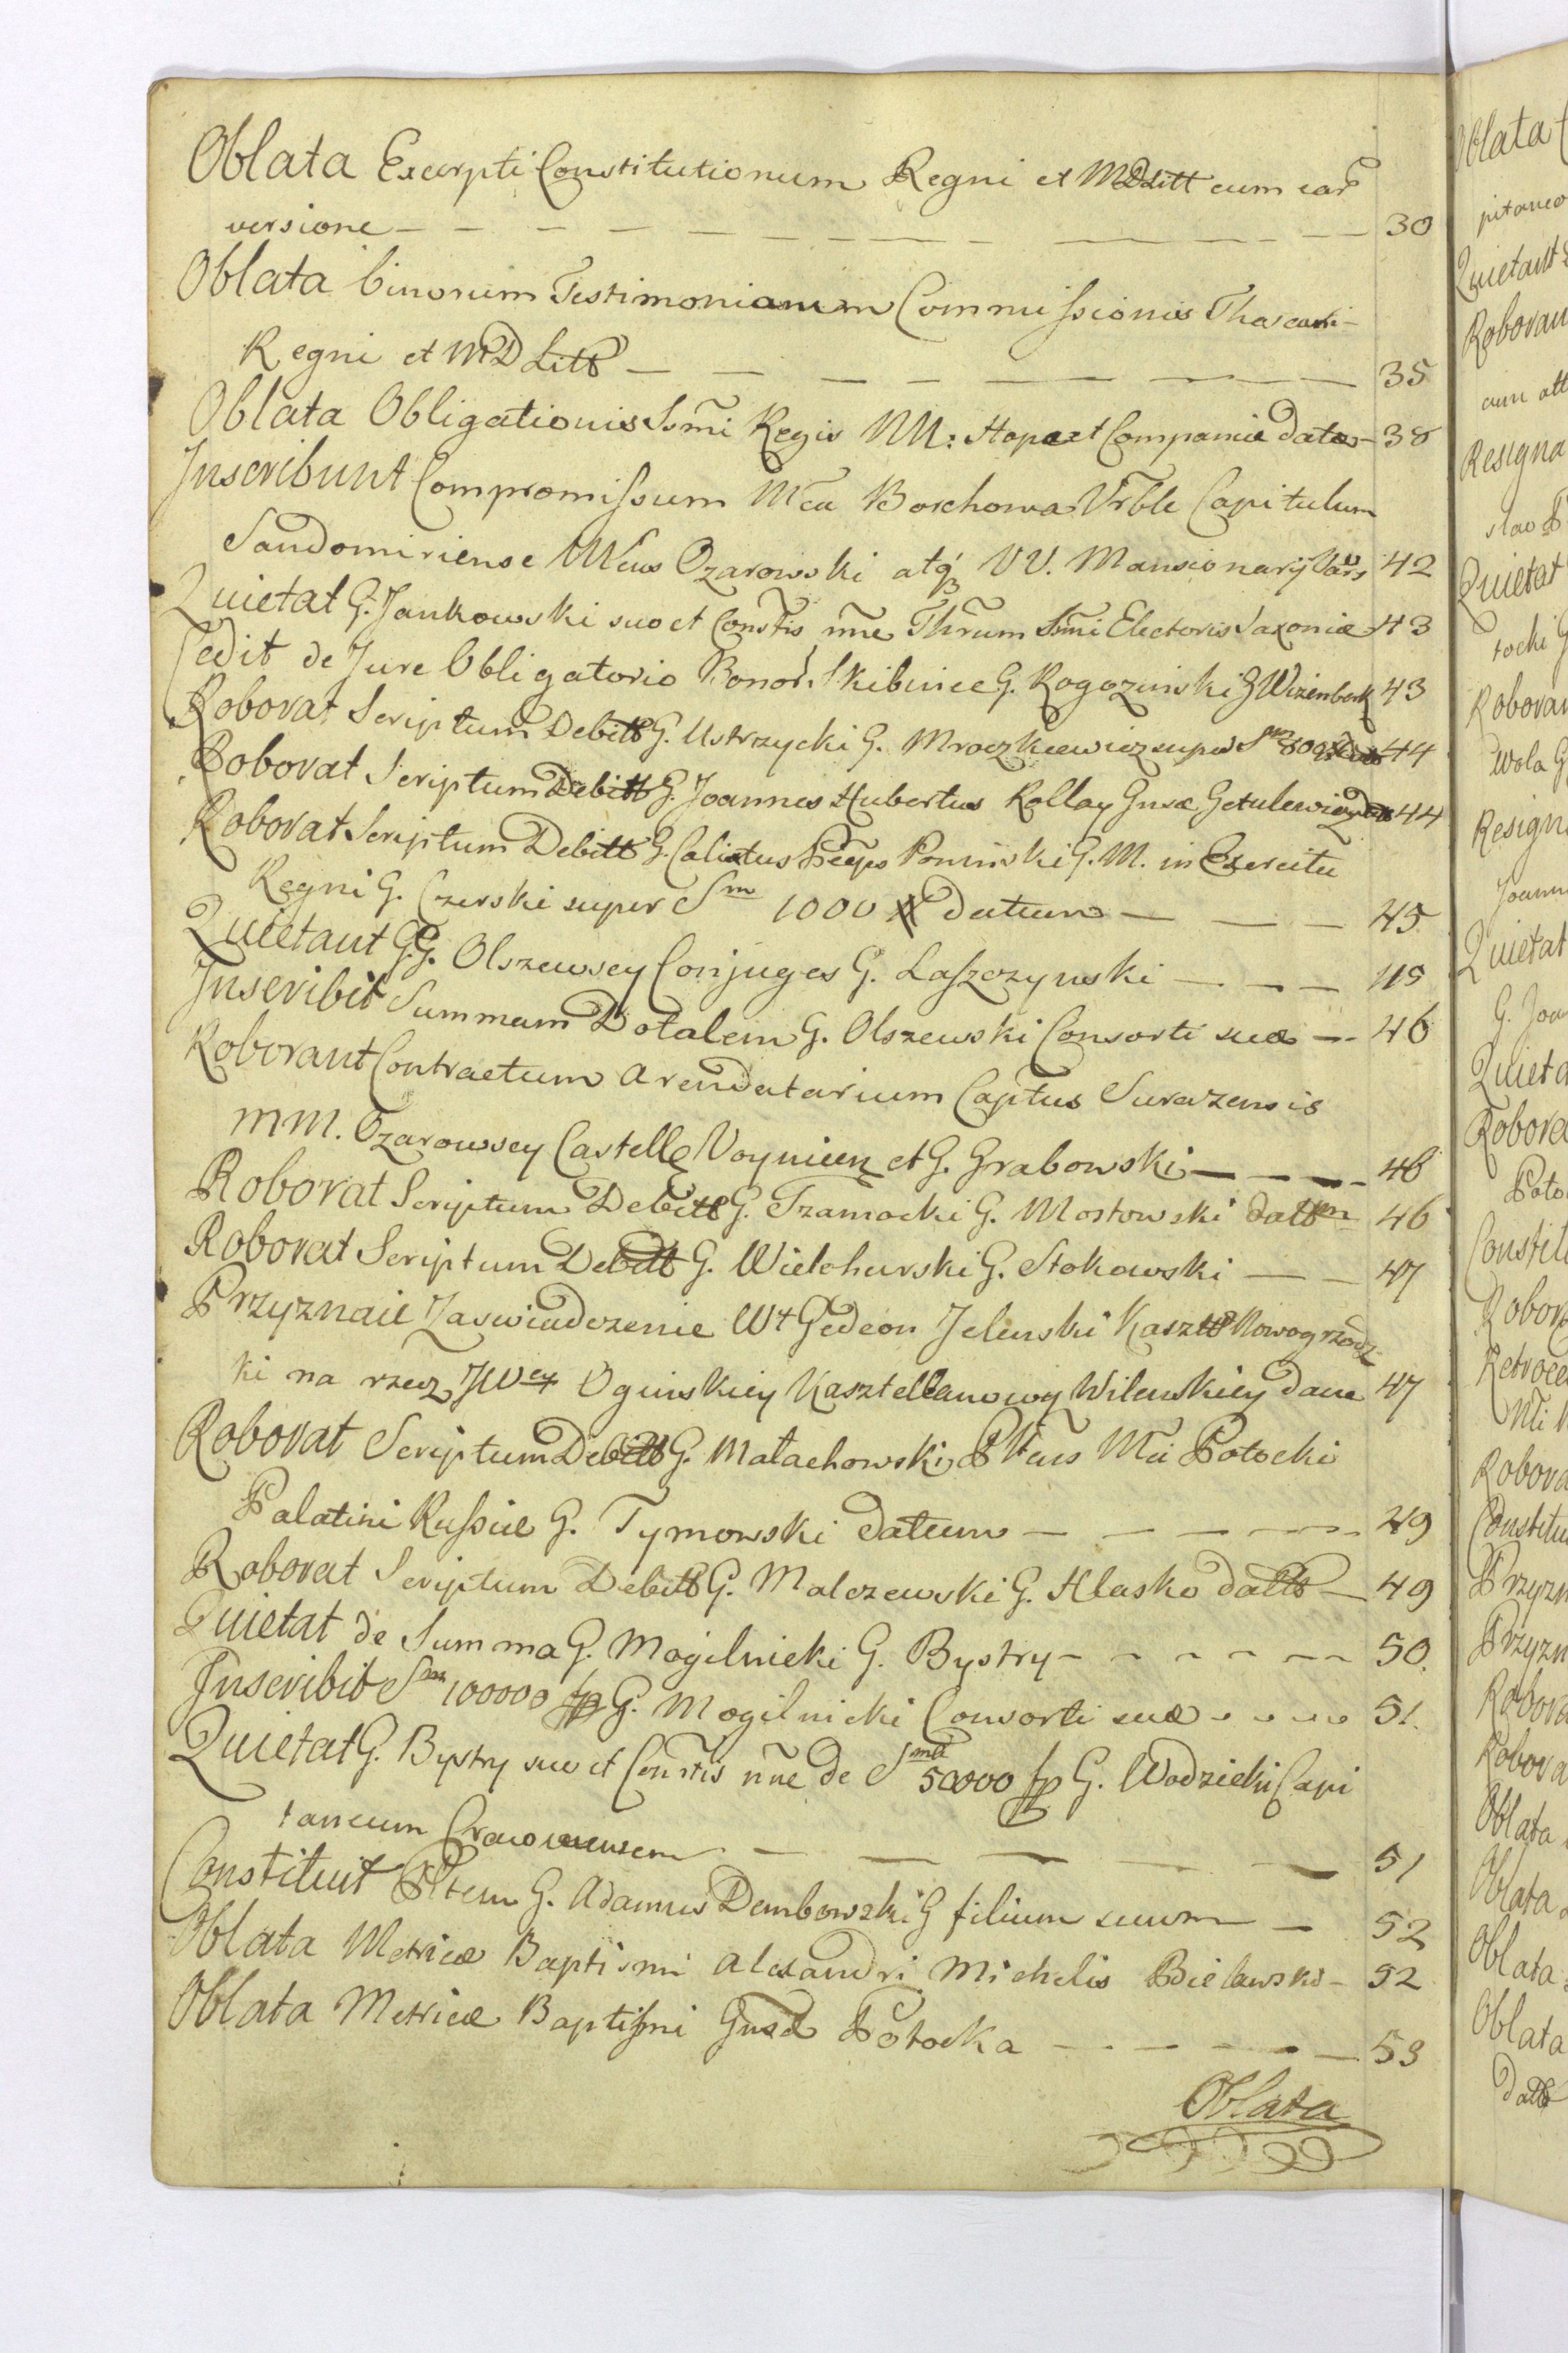 Oblata Excerpti Constitutionum Regni et MDLitt cum ear
versione - - - - - - - - - - - 30
Oblata binorum Testimoniarum Commissionis Thesauri
Regni et MD Litt - - - - - - - 35
Oblata Obligationis Ssmi Regis MM: Hope et Companie data - 38
Inscribunt Compromissum Mca Borchowa Vrble Capitulum
Sandomiriense Mcus Ozarowski atq VV. Mansionarij Vars 42
Quietat G. Jankowski suo et Constis nne Thrum Smi Electoris Saxoniæ 43
Cedit de Jure Obligatorio Bonor. Skibince G. Rogozinski G Wizenberk 43
Roborat Scriptum Debitt G. Ustrzycki G. Mroczkiewicz super Sm 44
Roborat Scriptum Debitt G. Joannes Hubertus Rollay Gnsæ Getulewicz 44
Roborat Scriptum Debitt G. Calixtus Pceps Poninski G. M. in Exercitu
Regni G. Czerski super Sm 1000 # datum - - - 45
Quietant GG. Olszewscy Conjuges G. Laszczynski - - - 45
Inscribit Summam Dotalem G. Olszewski Consorti suæ - - 46
Roborant Contractum Arendatarium Captus Surazensis
MM. Ozarowscy Castell Voynicen et G. Grabowski - - - - 46
Roborat Scriptum Debitt G. Tzamocki G. Mostowski dattm 46
Roborat Scriptum Debitt G. Wielohurski G. Stokowski - - 47
Przyznaie Zaswiadczenie Wt Gedeon Jelenski Kasztt Nowogrzodz-
ki na rzecz JWey Oginskiey Kasztellanowy Wilenskiey dane 47
Roborat Scriptum Debitt G. Małachowski Mci Potocki
Palatini Russiæ G. Tymowski datum - - - - - 49
Roborat Scriptum Debitt G. Malczewski G. Hlasko datt - 49
Quietat de Summa G. Mogilnicki G. Bystry - - - - - - 50.
Inscribit Sm 100000 fp G. Mogilnicki Consorti suæ - - - - 51.
Quietat G. Bystry suo et Constis nne de Sma 50000 fp G. Wodzicki Capi
taneum Cracoviensem - - - - - 51
Constituit Pltem G. Adamus Dembowski G filium suum - 52
Oblata Metricæ Baptismi Alexandri Michelis Bielawski - 52
Oblata Metricæ Baptismi Gnsæ Potocka - - - - - 53
Oblata
Oblata
pitaneo
Quietant
Roboran
cum att
Resigna
slao P
Quietat
tocki G
Roboran
Wola G
Resigna
Joann
Quietat
G. Joan
Quieta
Robora
Poto
Constit
Robora
Retroce
Robora
Constitu
Przyzn
Przyzn
Robora
Robora
Oblata
Oblata
Oblata
Oblata
datt